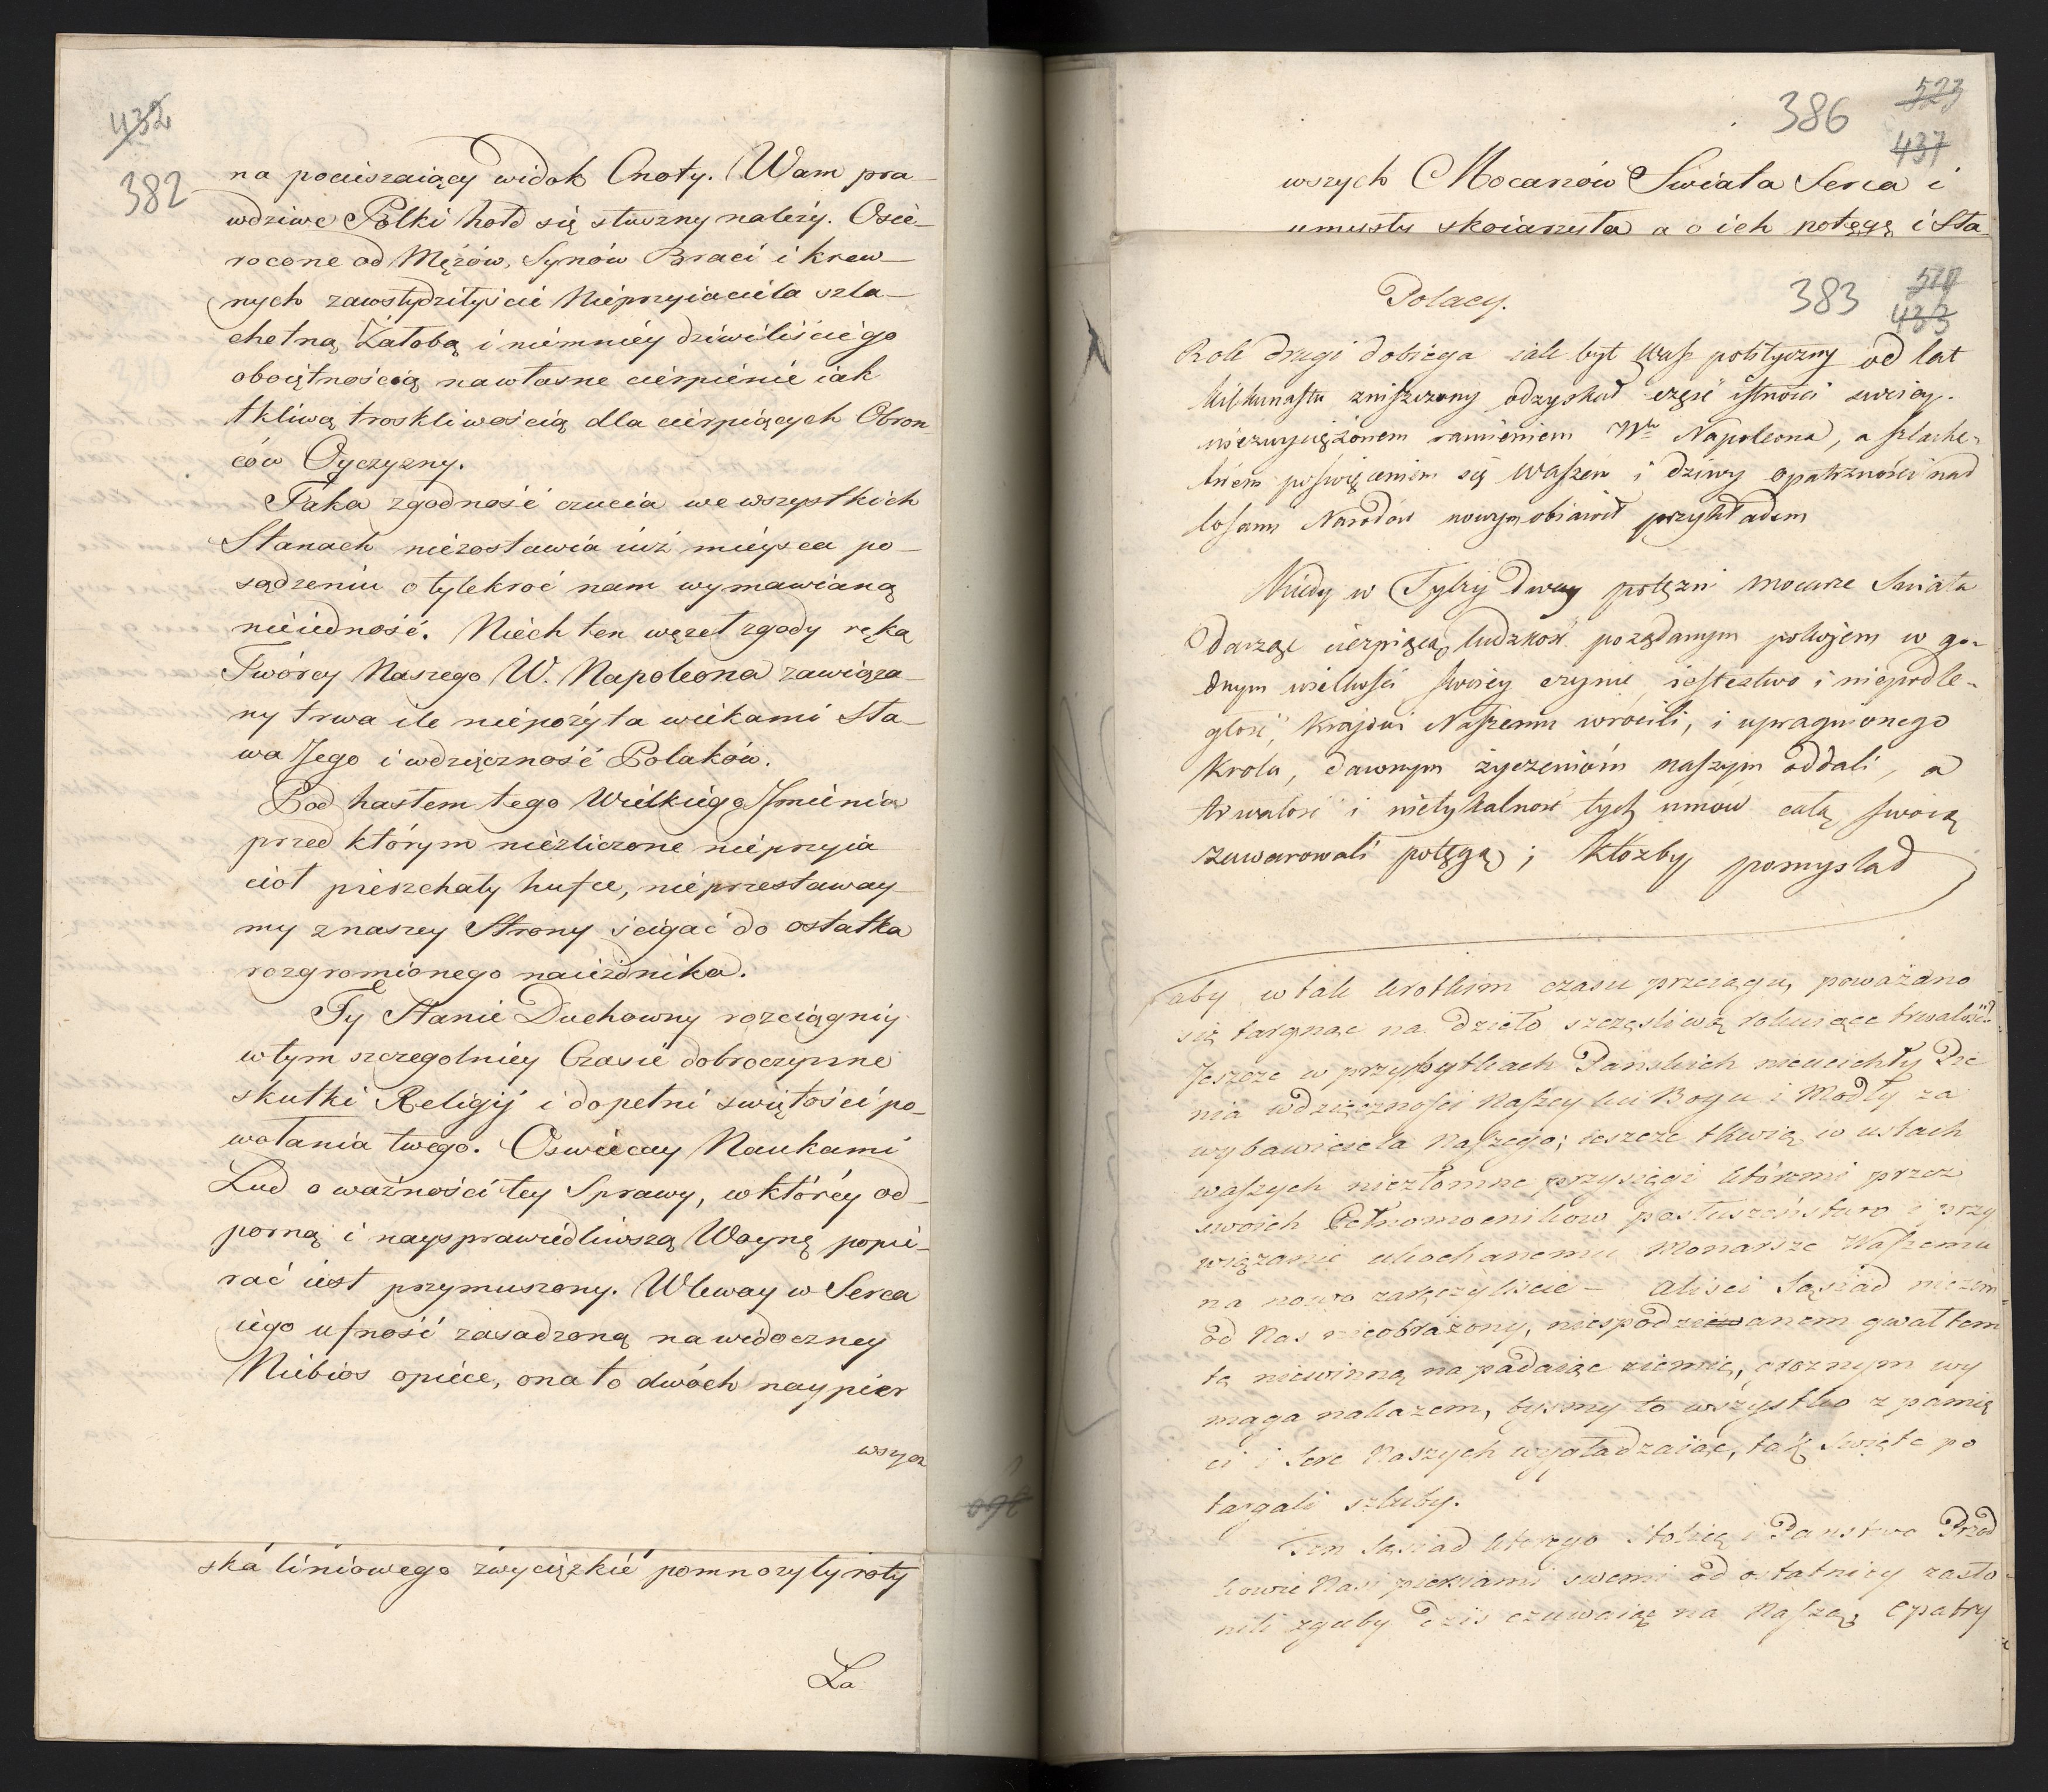 432
382
na pocieszaiący widok Cnoty. Wam pra-
wdziwe Polki hołd się słuszny należy. Osie-
rocone od Mężów, Synów Braci i krew-
nych zawstydziłyście Nieprzyiaciela szla-
chetną Żałobą i niemniéy dziwiliście go
oboiętnością na własne cierpienie iak
tkliwą troskliwością dla cierpiących Obron
ców Oyczyzny.
Taka zgodność czucia we wszystkich
Stanach niezostawia iuż mieysca po-
sądzeniu o tylekroć nam wymawianą
nieiedność. Niech ten węzeł zgody ręką
Twórcy Naszego W. Napoleona zawiąza-
ny trwa ile niepożyta wiekami Sła-
wa Jego i wdzięczność Polaków.
Pod hasłem tego Wielkiego Jmienia
przed którym niezliczone nieprzyia
ciół pierzchały hufce, nieprzestaway-
my z naszey Strony ścigać do ostatka
rozgromionego naieźdnika.
Ty Stanie Duchowny rozciągniy
w tym szczegolniey Czasie dobroczynne
skutki Religij i dopełni swiętości po-
wołania twego. Oswiecay Naukami
Lud o ważności tey Sprawy, w którey od-
porną i naysprawiedliwszą Woynę popie-
rać iest przymuszony. Wleway w Serca
iego ufność zasadzoną na widoczney
Niebios opiece, ona to dwóch naypier
wszych
ska liniowego zwycięzkié pomnożyły roty
La
386
523
437
wszych Mocarzów Swiata Serca i
umysły skoiarzyła a o ich potęgę i Sła
383
518
433
Polacy.
Rok drugi dobiega iak byt Wasz polityczny od lat
kilkunastu zniszczony odzyskał część istności swoiey.
niezwyciężonem ramieniem Wgo Napoleona, a szlache-
tném poswięceniem się Waszém i dziwy opatrzności nad
losami Narodów nowym obiawił przykładem
Kiedy w Tylży dway potężni mocarze Swiata
Darząc cierpiącą ludzkość pożądanym pokojem w go-
dnym wielkości swoiey czynie iestestwo i niepodle-
głość Krajowi Naszemu wrócili, i upragnionego
Krola, dawnym życzeniom naszym oddali, a
trwałość i nietykalność tych umów całą swoią
zawarowali potęgą; Któżby pomyslał
aby w tak krotkim czasu przeciągu, poważano
się targnąc na dzieło szczęsliwą rokuiące trwałość?
Jeszcze w przybytkach Panskich nieucichły Pie
nia wdzięczności Naszey ku Bogu i Modły za
wybawiciela Naszego; ieszcze tkwią w ustach
waszych niezłomne przysięgi któremi przez
swoich Pełnomocnikow posłuszeństwo i przy
wiązanie ukochanemu Monarsze Waszemu
na nowo zaręczyliscie – aliści Sąsiad niczém
od Nas nieobrażony, niespodziewanem gwałtem
tę niewinną napadaiąc ziemię, groznym wy
maga nakazem, bysmy to wszystko z pamię
ci i Serc Naszych wygładzaiąc, tak święte po
targali szluby.
Ten Sąsiad ktorego Stolicę i Panstwo Przod
kowie Nasi piersiami swemi od ostatniey zasło
nili zguby Dziś czuwaiąc na Naszą, Opatrz